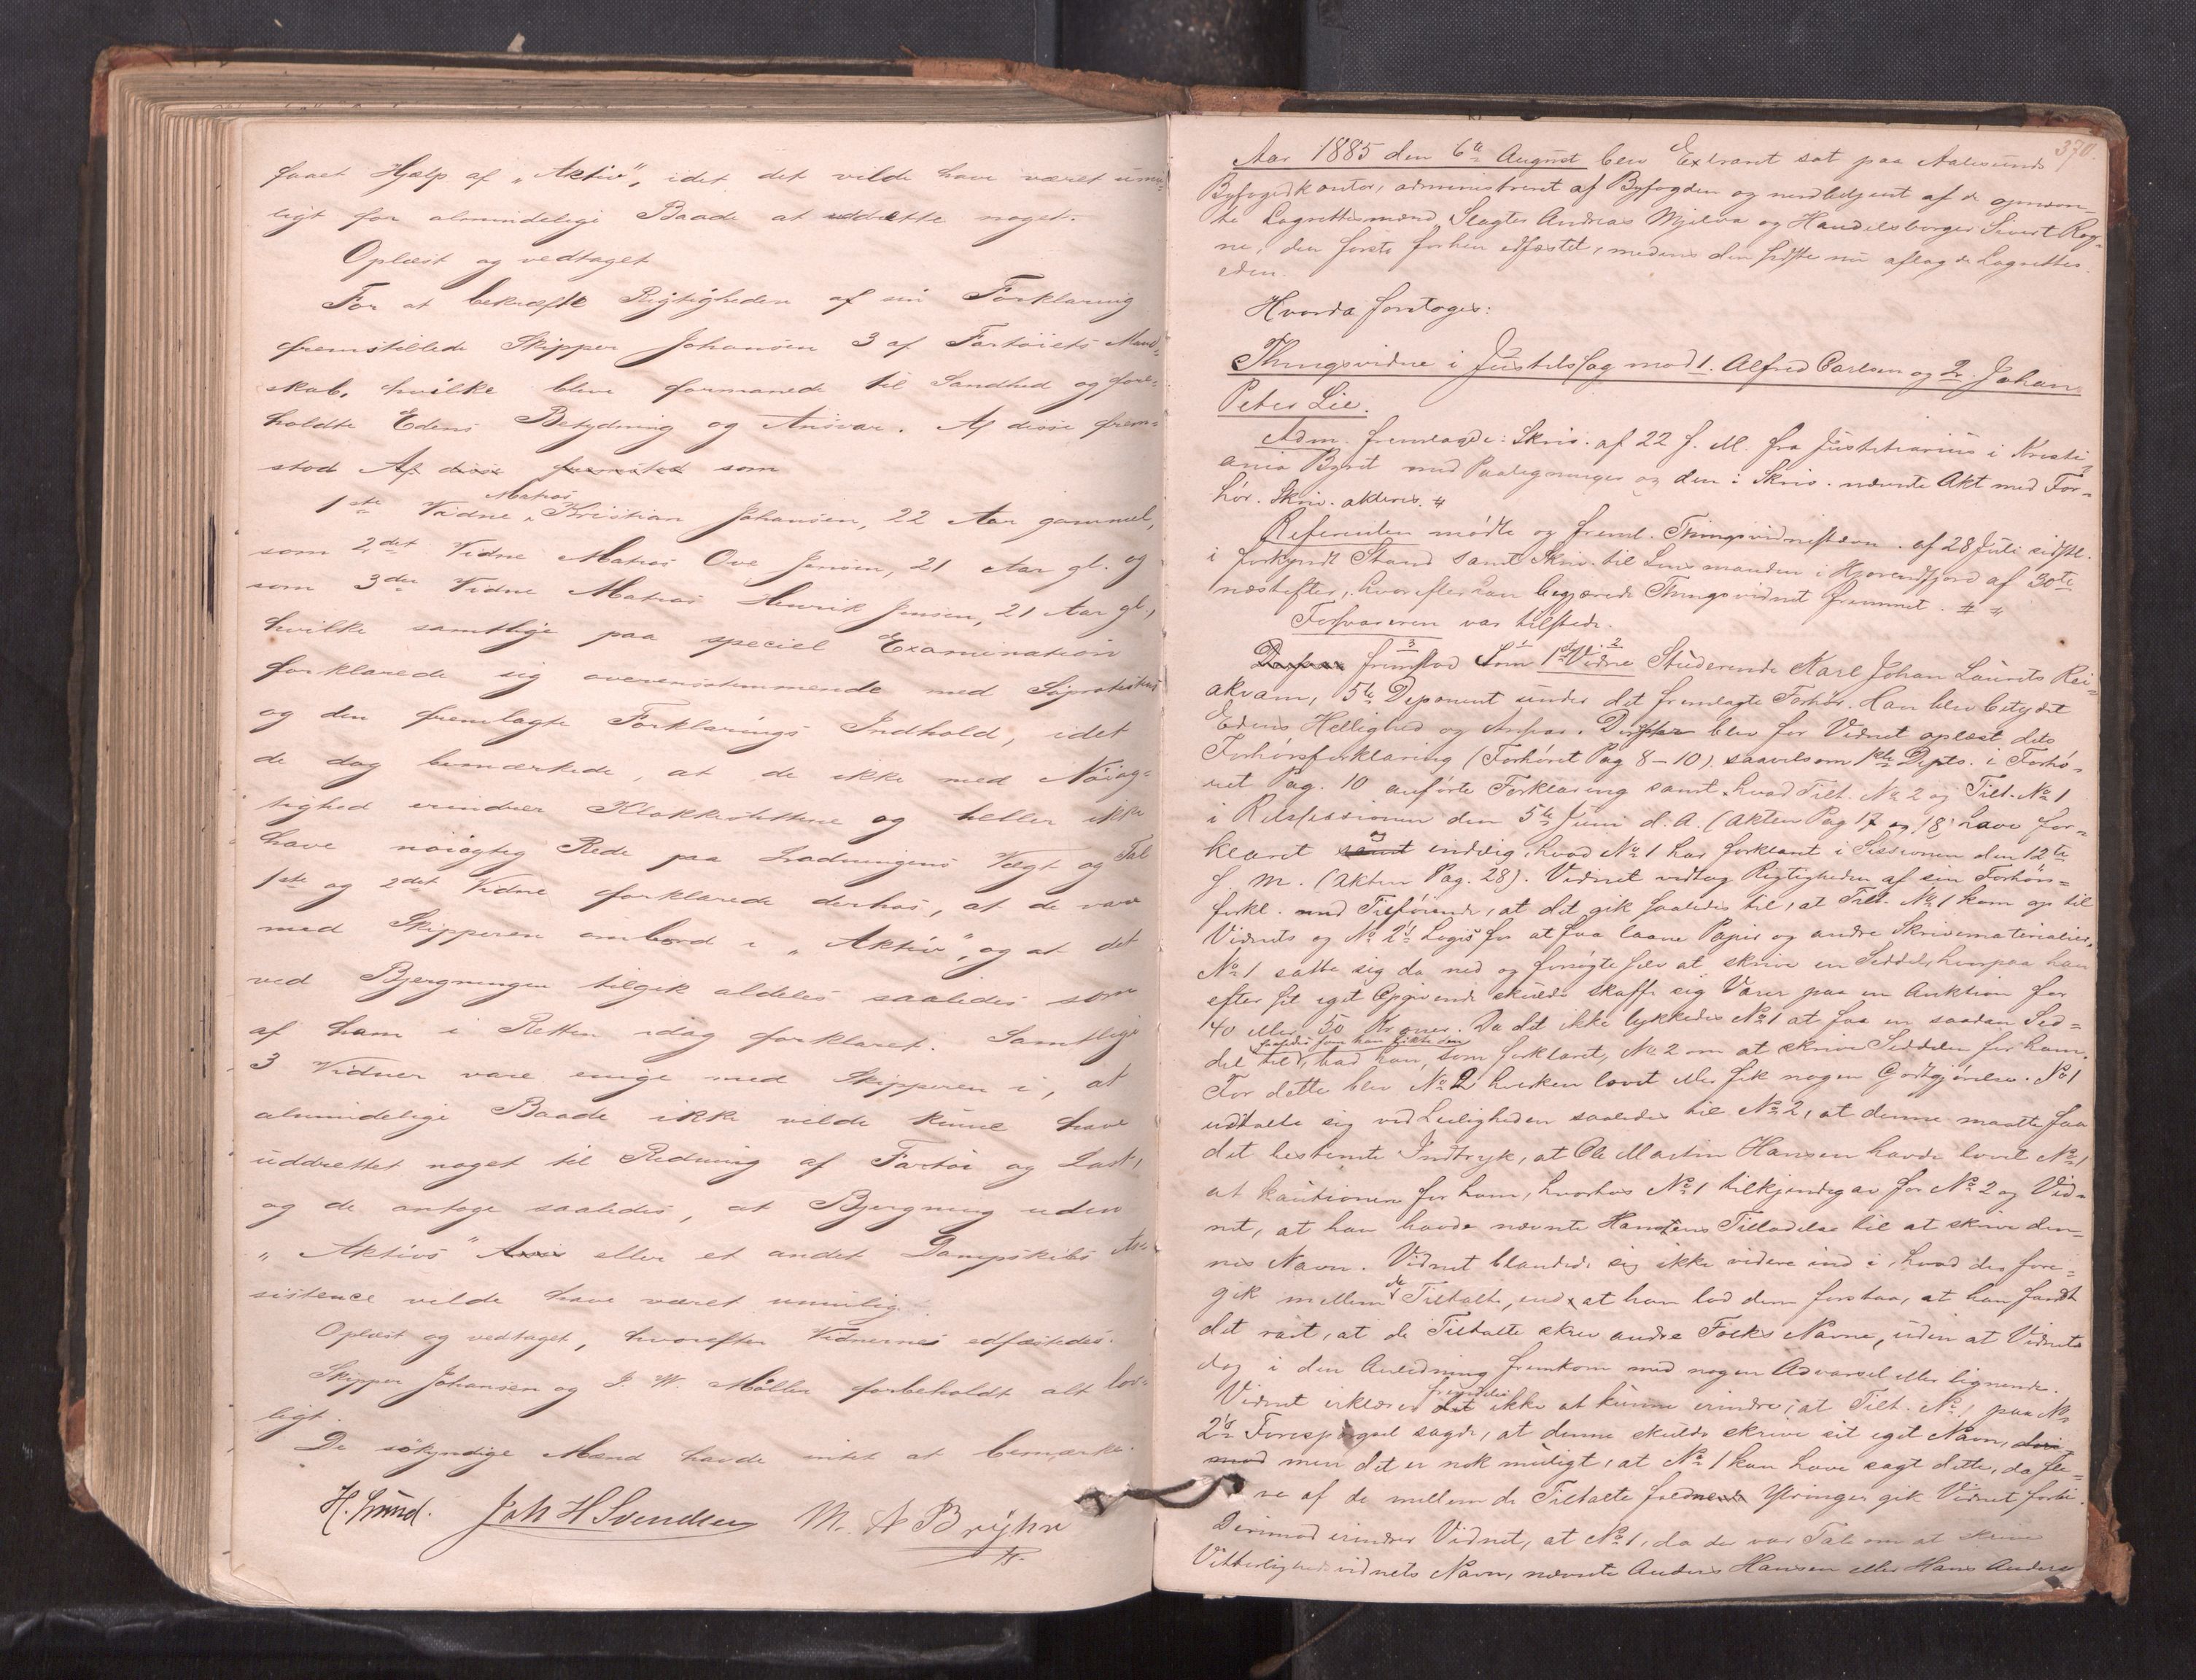 faaet Hjælp af „Aktiv“, idet det vilde have været umu-
ligt for almindelige Baade at uddrette noget.
Oplæst og vedtaget
For at bekræfte Rigtigheden af sin Forklaring
fremstillede Skipper Johansen 3 af Fartøiets Mand-
skab, hvilke bleve formanede til Sandhed og fore-
holdte Edens Betydning og Ansvar. Af disse frem-
stod Af disse fremstod som
1ste Vidne Matros Kristian Johansen, 22 Aar gammel,
som 2det Vidne Matros Ove Jensen, 21 Aar gl. og
som 3die Vidne Matros Henrik Jensen, 21 Aar gl.,
hvilke samtlige paa speciel Examination
forklarede sig overensstemmende med Søprotesten
og den fremlagte Forklarings Indhold, idet
de dog bemærkede, at de ikke med Nøiag-
tighed erindrer Klokkeslettene og heller ikke
have nøiagtig Rede paa Ladningens Vægt og Tal
1ste og 2det Vidne forklarede derhos, at de var
med Skipperen ombord i „Aktiv“, og at det
ved Bjergningen tilgik aldeles saaledes som
af ham i Retten idag forklaret. Samtlige
3 Vidner vare enige med Skipperen i, at
almindelige Baade ikke vilde kunne have
uddrettet noget til Redning af Fartøi og Last,
og de antage saaledes, at Bjergning uden
„Aktivs“ Assis eller et andet Dampskibs As-
sistence vilde have været umulig.
Oplæst og vedtaget, hvorefter Vidnerne edfæstedes.
Skipper Johansen og J. W. Møller forbeholdt alt lov-
ligt.
De søkyndige Mænd havde intet at bemærke.
H. Lund. Joh H Svendsen M. A Brÿhn
370.
Aar 1885 den 6te August blev Extraret sat paa Aalesunds
Byfogedkontor, administreret af Byfogden og medbetjent af de opnævn-
te Lagrettesmænd, Slagter Andreas Mjelva og Handelsborger Sivert Rog-
ne, den første forhen edfæstet, medens den sidste nu aflagde Lagrettes-
eden.
Hvorda foretoges:
Thingsvidne i Justitssag mod 1. Alfred Carlsen og 2. Johan
Peter Lie.
Adm. fremlagde: Skriv. af 22 f. M. fra Justitiarius i Kristi-
ania Byret med Paategninger og den i Skriv. nævnte Akt med For-
hør. Skriv. akteres. #
Referenten mødte og freml. Thingsvidnestævn. af 28 Juli sidstl.
i forkyndt Stand samt Skriv. til Lensmanden i Hjørendfjord af 30te
næstefter, hvorefter han begjærede Thingsvidnet fremmet. # #
Forsvareren var tilstede.
fremstod Som 1ste Vidne Studerende Karl Johan Laurits Rei-
akvam, 5te Deponent under det fremlagte Forhør. Han blev betydet
Edens Hellighed og Ansvar. Derpaa blev for Vidnet oplæst dets
Forhørsforklaring (Forhøret Pag 8-10), saavelsom 1ste Depts. i Forhø-
ret Pag. 10 anførte Forklaring samt hvad Tilt. No 2 og Tilt. No 1
i Retssessionen den 5te Juni d. A. (Akten Pag 17 og 18) have for-
klaret samt og endelig, hvad No 1 har forklaret i Sessionen den 12te
f. M. (Akten Pag. 28). Vidnet vedtog Rigtigheden af sin Forhørs-
forkl. med Tilføiende, at det gik saaledes til, at Tilt. No 1 kom op til
Vidnets og No 2's Logis for at faa laane Papir og andre Skrivematerialier.
No 1 satte sig da ned og forsøgte selv at skrive en Seddel, hvorpaa han
efter sit eget Opgivende skulde skaffe sig Varer paa en Auktion for
40 eller 50 Kroner. Da det ikke lykkedes No 1 at faa en saadan Sed-
del til, saaledes som han likte den, bad han, som forklaret, No 2 om at skrive Seddelen for ham.
For dette blev No 2 hverken lovet eller fik nogen Godtgjørelse. No 1
udtalte sig ved Leiligheden saaledes til No 2, at denne maatte faa
det bestemte Indtryk, at Ole Martin Hansen havde lovet No 1
at kautionere for ham, hvorhos No 1 tilkjendegav for No 2 og Vid-
net, at han havde nævnte Hansens Tilladelse til at skrive den-
nes Navn. Vidnet blandede sig ikke videre ind i, hvad der fore-
gik mellem de Tiltalte, end at han lod dem forstaa, at han fandt
det rart, at de Tiltalte skrev andre Folks Navne, uden at Vidnet
dog i den Anledning fremkom med nogen Advarsel eller lignende.
Vidnet erklærer fremdeles ikke at kunne erindre, at Tilt. No 1 paa No
2's Forespørgsel sagde, at denne skulde skrive sit eget Navn, deri-
mod men det er nok muligt, at No 1 kan have sagt dette, da fle-
re af de mellem de Tiltalte faldne Ytringer gik Vidnet forbi.
Derimod erindrer Vidnet, at No 1, da der var Tale om at skrive
Vitterlighedsvidnets Navn, nævnte Anders Hansen eller Hans Anders